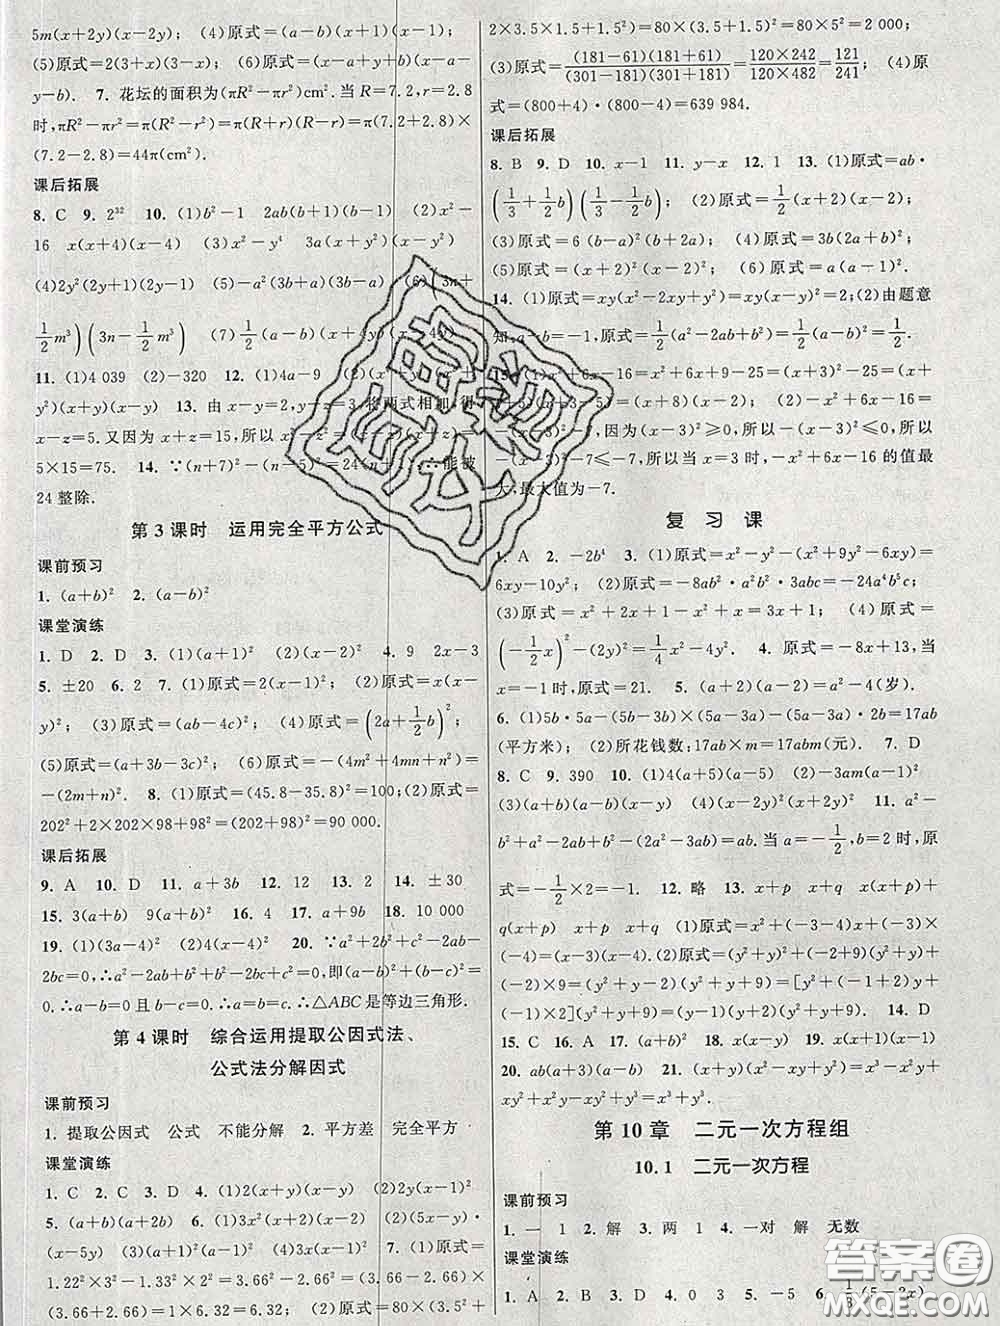 5m(x+2y)(x-2y); (4)原式=(a-b)(x+1)(x-1);
(5)原式=2(3+x)(3-x); (6)原式=(x-a+y+b)(x-a-
y-b). 7. 花坛的面积为(πR²-πr²)cm².当R=7.2,r=2.8
时,πR²-πr²=π(R²-r²)=π(R+r)(R-r)=π(7.2+2.8)×
(7.2-2.8)=44π(cm²).
课后拓展
8. C 9. 2³² 10. (1)b²-1 2ab(b+1)(b-1) (2)x²-
16 x(x+4)(x-4) (3)x²-y⁴ 3a(x+y²)(x-y²)
(4)2y²(2y+1)(2y-1) (5)-a²(3b+a)(3b-a) (6)(3n+
1/2m³)(3n-1/2m³) (7)1/2(a-b)(x+4y)(x-4y)
11. (1)4 039 (2)-320 12. (1)4a-9 (2)(x²+
y²)(x+y)(x-y) 13. 由x-y=2,y-z=3,将两式相加,得
x-z=5.又因为x+z=15,所以x²-z²=(x+z)(x-z)=
5×15=75. 14. ∵(n+7)²-(n-5)²=24(n+1),∴能被
24整除.
第3课时 运用完全平方公式
课前预习
1. (a+b)² 2. (a-b)²
课堂演练
1. D 2. D 3. (1)(a+1)² (2)(x-2)² 4. 9 2x-3
5. ±20 6. 2 7. (1)原式=2(x-1)²; (2)原式=x(x-
y)²; (3)原式=(ab-4c)²; (4)原式=(2a+1/2b)²;
(5)原式=(a+3b-3c)²; (6)原式=-(4m²+4mn+n²)=
-(2m+n)². 8. (1)原式=(45.8-35.8)²=100;(2)原式=
202²+2×202×98+98²=(202+98)²=90 000.
课后拓展
9. A 10. D 11. a+3b 12. 12 13. 2 14. ±30
15. 3(a+b) 9(a+b)² 16. 4 17. a+9b 18. 10 000
19. (1)(3a-4)² (2)4(x-y)² 20. ∵a²+2b²+c²-2ab-
2bc=0,∴a²-2ab+b²+b²-2bc+c²=0,即(a-b)²+(b-c)²=
0.∴a-b=0且b-c=0.∴a=b=c.∴△ABC是等边三角形.
第4课时 综合运用提取公因式法、
公式法分解因式
课前预习
1. 提取公因式 公式 不能分解 2. 平方差 完全平方
课堂演练
1. C 2. C 3. D 4. (1)2(x+y)(x-y) (2)2y(x-y)²
5. (a+b)(a+2b) 6. (1)3x²(x+2)(x-2) (2)(x+5y)²
(x-5y)² (3)a²(a+1)²(a-1)² 7. (1)原式=
1.22²×3²-1.33²×2²=3.66²-2.66²=(3.66-2.66)×
(3.66+2.66)=1×6.32=6.32; (2)原式=80×(3.5²+
2×3.5×1.5+1.5²)=80×(3.5+1.5)²=80×5²=2 000;
(3)原式=(181-61)(181+61)/(301-181)(301+181)=120×242/120×482=121/241; (4)原
式=(800+4)·(800-4)=639 984.
课后拓展
8. B 9. D 10. x-1 11. y-x 12. 1 13. (1)原式=ab·
(1/3+1/2b)(1/3-1/2b); (2)原式=1/2(x+2)(x-2);
(3)原式=6(b-a)²(b+2a); (4)原式=3b(2a-b)²;
(5)原式=(x+2)²(x-2)²; (6)原式=a(a-1)².
14. (1)原式=xy(x²-2xy+y²)=xy(x-y)²=2;(2)由题意
知:a-b=-1,原式=1/2(a²-2ab+b²)=1/2(a-b)²=1/2.
15. (1)x²+6x-16=x²+6x+9-25=(x+3)²-25=(x+3+
5)(x+3-5)=(x+8)(x-2); (2)-x²+6x-16=
-(x-3)²-7,因为(x-3)²≥0,所以-(x-3)²≤0.所以
-(x-3)²-7≤-7,所以当x=3时,-x²+6x-16的值最
大,最大值为-7.
复习课
1. A 2. -2b⁴ 3. (1)原式=x²-y²-(x²+9y²-6xy)=
6xy-10y²; (2)原式=-8ab²·a²b²·3abc=-24a⁴b⁵c;
(3)原式=x²+2x+1-x²+x=3x+1; (4)原式=
(-1/2x)²-(2y)²=1/4x²-4y². 4. 原式=-8x+13,当
x=-1时,原式=21. 5. (a+2)(a-2)=a²-4(岁).
6. (1)5b·5a-(5b-3b)×(5a-3a)-(5a-3a)·2b=17ab
(平方米); (2)所花钱数;17ab×m=17abm(元). 7. D
8. C 9. 390 10. (1)4(5+a)(5-a) (2)-3am(a-1)²
(3)(a+b)(a-b)(x-y) (4)(x+1)²(x-1)² 11. a²-
b²+a²-2ab+b²-(2a²-3ab)=ab. 当a=-1/2,b=2时,原
式=-1/2×2=-1. 12. 略 13. x+p x+q x(x+p)+
q(x+p) x+p x+q (1)原式=x²+(-3-4)x+(-3)×
(-4)=(x-3)(x-4); (2)原式=(y²+y)²+(-2+9)(y²+y)+
(-2)×9=(y²+y-2)(y²+y+9)=[y²+(-1+2)y+
(-1)×2](y²+y+9)=(y-1)(y+2)(y²+y+9). 14. D
15. C 16. A 17. (a+b)² 18. x(x-y) 19. x(x-1)²
20. ab(a+3)(a-3) 21. (x+y)(x²-xy+y²)=x³-x²y+
xy²+x²y-xy²+y³=x³+y³.
第10章 二元一次方程组
10.1 二元一次方程
课前预习
1. 一 1 2. 解 3. 两 1 4. 一对 解 无数
课堂演练
1. A 2. D 3. D 4. 0 3 5. -2 6. 1/3(5-2x)
答案圈
MXQE.COM